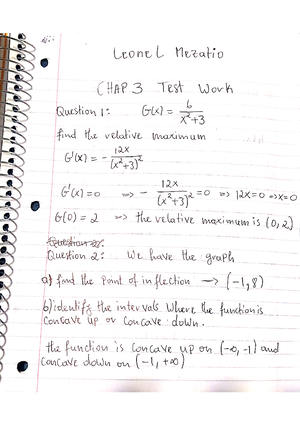 Leonel Mezatio
CHAP 3 Test Work
Question 1: G(x) = 6 / x²+3
find the relative maximum
G'(x) = - 12x / (x²+3)²
G'(x) = 0 => - 12x / (x²+3)² = 0 => 12x = 0 => x = 0
G(0) = 2 => the relative maximum is (0, 2)
Question 2:
Question 2: We have the graph
a) find the point of inflection → (-1, 8)
b) identify the intervals where the function is
concave up or concave down.
the function is concave up on (-∞, -1) and
concave down on (-1, +∞)